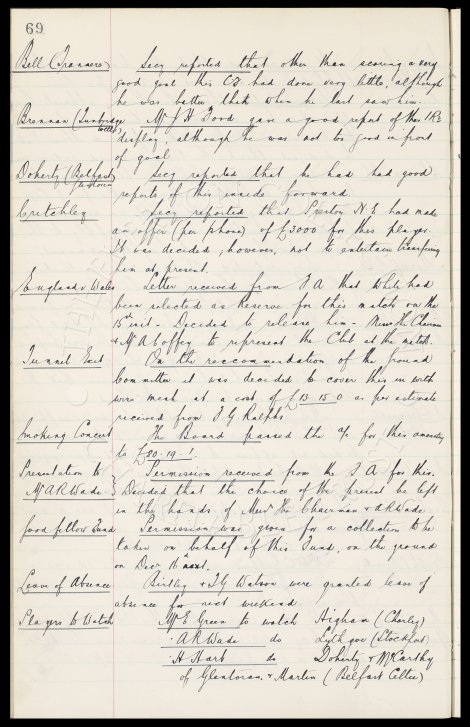 69
Bell (Tranmere) Secy reported that other than scoring a very
good goal this CF. had done very little, although
he was better that when he last saw him.
Brennan (Tunbridge Wells) Mr J H Tood gave a good report of this IR's
display, although he was not too good in front
of goal.
Doherty (Belfast Glentoran) Secy reported that he had had good
reports of this inside forward.
Critchley Secy reported that Preston N.E. had made
an offer (per phone) of £3000 for this player.
It was decided, however, not to entertain transferring
him at present.
England v Wales Letter received from F A that White had
been selected as Reserve for this match on the
15th inst - Decided to release him - Messrs The Chairman
& Mr A Coffey to represent the Club at the match.
Tunnel Exit On the reccommendation of the Ground
Committee it was decided to cover this in with
wire mesh at a cost of £13 15 0 as per estimate
received from F G Ralphs
Smoking Concert The Board passed the a/c for this amounting
to £80.19.1
Presentation to Permission received from the F A for this.
Mr A R Wade. Decided that the choice of the present be left
in the hands of Messrs The Chairman & A R Wade
Good fellow Fund Permission was given for a collection to be
taken on behalf of this Fund, on the ground
on Decr 16th next.
Leave of Absence Birtley & T G Watson were granted leave of
absence for next weekend.
Players to Watch Mr E Green to watch Higham (Chorley)
" A R Wade do Lythgoe (Stockport)
" H Hart do Doherty & McCarthy
of Glentoran & Martin (Belfast Celtic)